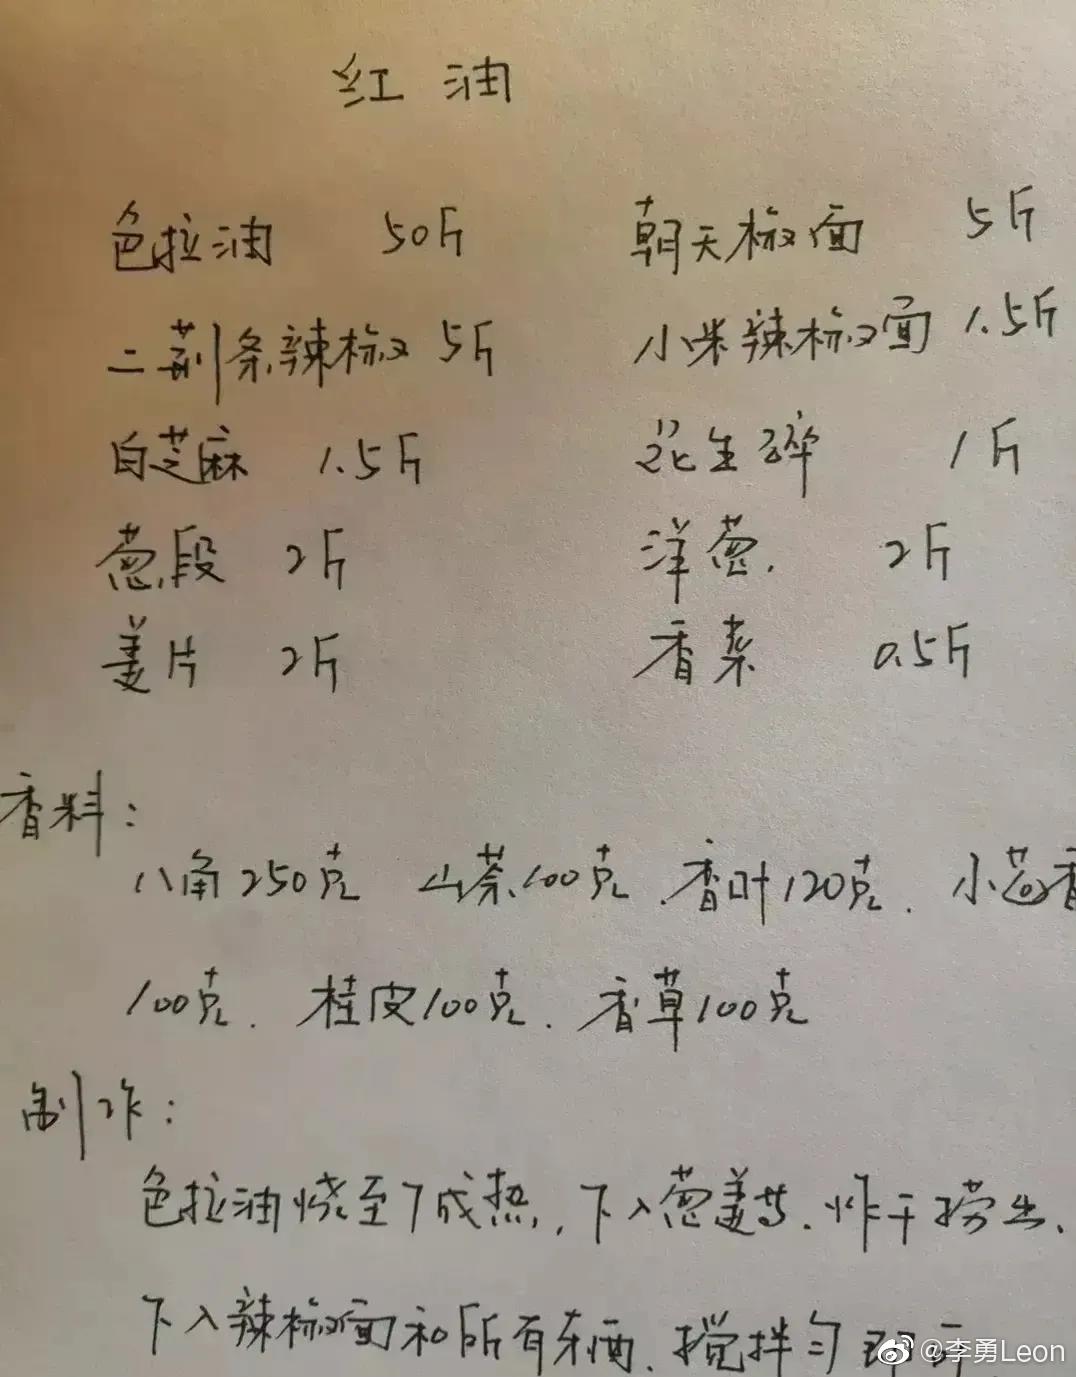 红油
色拉油 50斤 朝天椒面 5斤
二荆条辣椒 5斤 小米辣椒面 1.5斤
白芝麻 1.5斤 花生碎 1斤
葱段 2斤 洋葱. 2斤
姜片 2斤 香菜 0.5斤
香料:
八角250克 山茶100克.香叶120克.小茴香
100克.桂皮100克.香草100克
制作:
色拉油烧至7成热,下入葱姜等.炸干捞出.
下入辣椒面和所有东西.搅拌匀即可
@李勇Leon